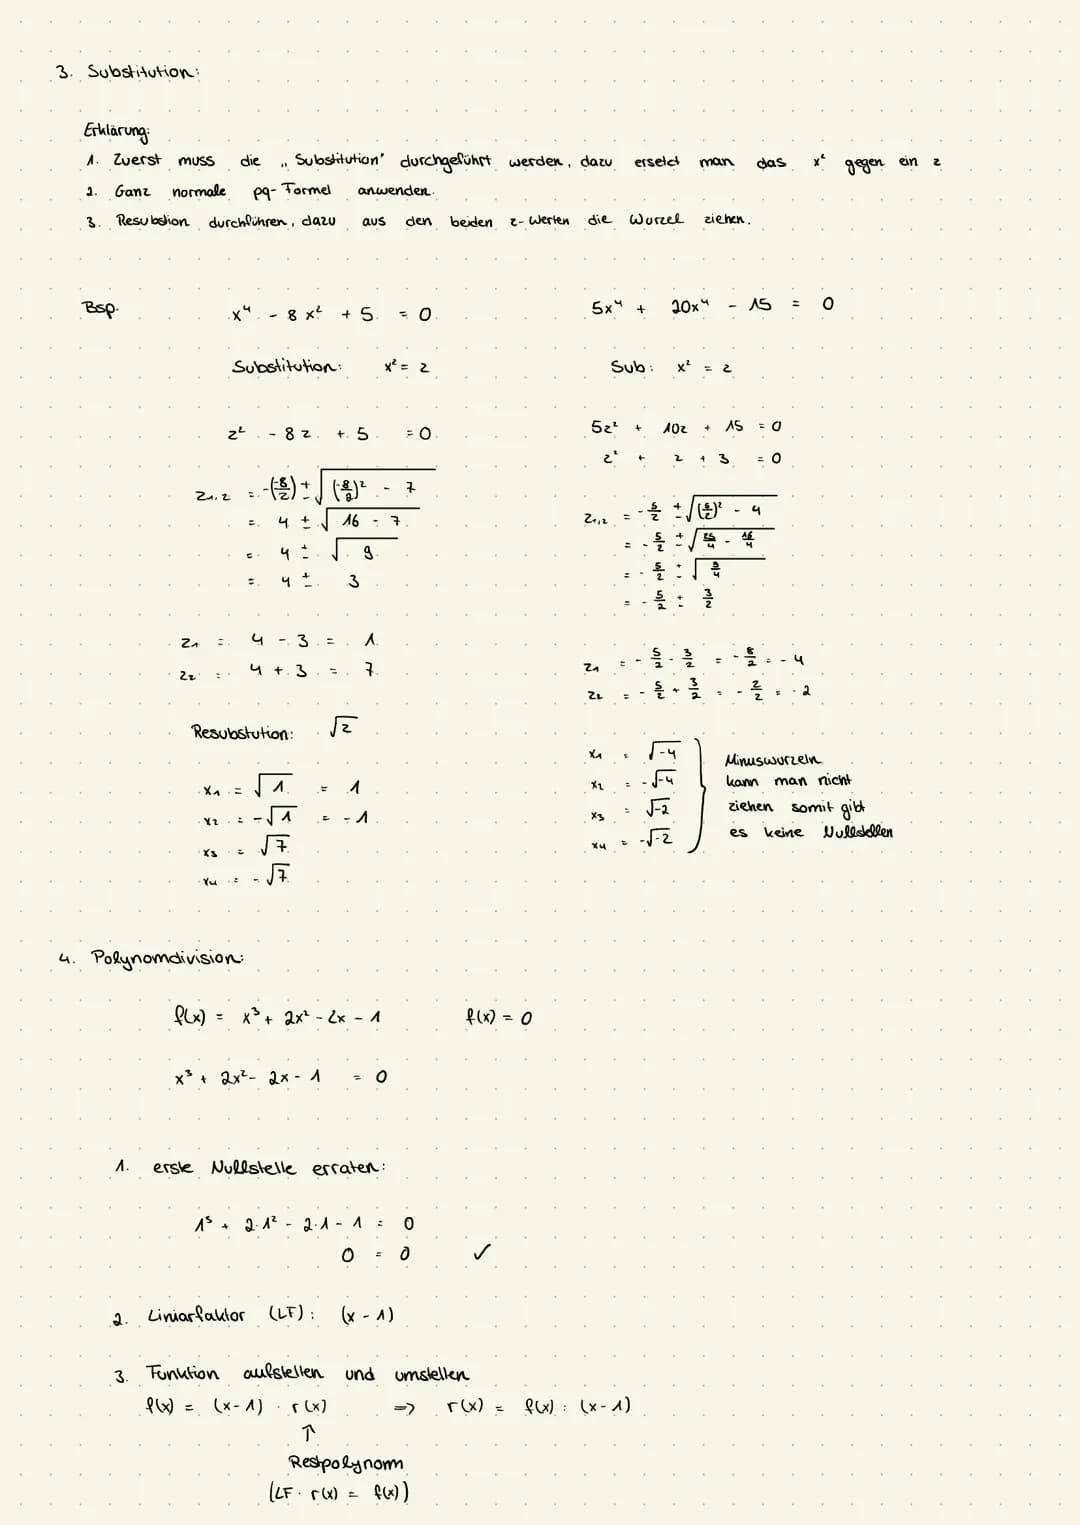 3. Substitution:
Erklärung:
1. Zuerst muss die „Substitution" durchgeführt werden, dazu ersetzt man das x² gegen ein z
2. Ganz normale pq-Formel anwenden.
3. Resubstion durchführen, dazu aus den beiden z-Werten die Wurzel ziehen.
Bsp.
x⁴ - 8x² + 5 = 0
Substitution: x² = z
z² - 8z + 5 = 0
z₁,₂ = -(-8/2) ± √((-8/2)² - 7)
= 4 ± √(16 - 7)
= 4 ± √9
= 4 ± 3
z₁ = 4 - 3 = 1
z₂ = 4 + 3 = 7
Resubstution: √z
x₁ = √1 = 1
x₂ = -√1 = -1
x₃ = √7
x₄ = -√7
5x⁴ + 20x⁴ - 15 = 0
Sub: x² = z
5z² + 10z + 15 = 0
z² + z + 3 = 0
z₁,₂ = -5/2 ± √((5/2)² - 4)
= -5/2 ± √(25/4 - 16/4)
= -5/2 ± √(9/4)
= -5/2 ± 3/2
z₁ = -5/2 - 3/2 = -8/2 = -4
z₂ = -5/2 + 3/2 = -2/2 = -2
x₁ = √-4
x₂ = -√-4
x₃ = √-2
x₄ = -√-2
Minuswurzeln
kann man nicht
ziehen somit gibt
es keine Nullstellen
4. Polynomdivision:
f(x) = x³ + 2x² - 2x - 1 f(x) = 0
x³ + 2x² - 2x - 1 = 0
1. erste Nullstelle erraten:
1³ + 2·1² - 2·1 - 1 = 0
0 = 0 ✓
2. Liniarfaktor (LF): (x - 1)
3. Funktion aufstellen und umstellen
f(x) = (x-1) · r(x) ⇒ r(x) = f(x) : (x-1)
↑
Restpolynom
(LF · r(x) = f(x))